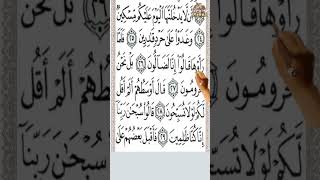 أَن لَّا يَدْخُلَنَّهَا الْيَوْمَ عَلَيْكُم مِّسْكِينٌ
﴿٢٤﴾ وَغَدَوْا عَلَىٰ حَرْدٍ قَادِرِينَ ﴿٢٥﴾ فَلَمَّا
رَأَوْهَا قَالُوا إِنَّا لَضَالُّونَ ﴿٢٦﴾ بَلْ نَحْنُ
مَحْرُومُونَ ﴿٢٧﴾ قَالَ أَوْسَطُهُمْ أَلَمْ أَقُل
لَّكُمْ لَوْلَا تُسَبِّحُونَ ﴿٢٨﴾ قَالُوا سُبْحَانَ رَبِّنَا
إِنَّا كُنَّا ظَالِمِينَ ﴿٢٩﴾ فَأَقْبَلَ بَعْضُهُمْ عَلَىٰ